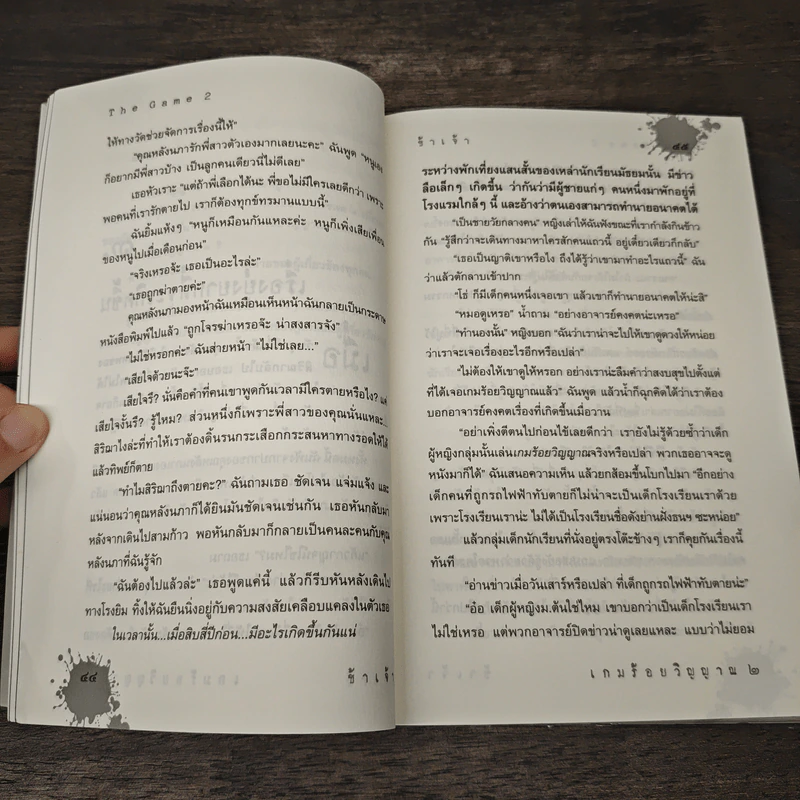 The Game 2
ให้ทางวัดช่วยจัดการเรื่องนี้ให้"
"คุณหลังนภารักพี่สาวตัวเองมากเลยนะคะ" ฉันพูด "หนูเอง
ก็อยากมีพี่สาวบ้าง เป็นลูกคนเดียวนี่ไม่ดีเลย"
เธอหัวเราะ "แต่ถ้าพี่เลือกได้นะ พี่ขอไม่มีใครเลยดีกว่า เพราะ
พอคนที่เรารักตายไป เราก็ต้องทุกข์ทรมานแบบนี้"
ฉันยิ้มแห้งๆ "หนูก็เหมือนกันแหละค่ะ หนูก็เพิ่งเสียเพื่อน
ของหนูไปเมื่อเดือนก่อน"
"จริงเหรอจ๊ะ เธอเป็นอะไรล่ะ"
"เธอถูกฆ่าตายค่ะ"
คุณหลังนภามองหน้าฉันเหมือนเห็นหน้าฉันกลายเป็นกระดาษ
หนังสือพิมพ์ไปแล้ว "ถูกโจรฆ่าเหรอจ๊ะ น่าสงสารจัง"
"ไม่ใช่หรอกค่ะ" ฉันส่ายหน้า "ไม่ใช่เลย..."
"เสียใจด้วยนะจ๊ะ"
เสียใจรึ? นั่นคือคำที่คนเขาพูดกันเวลามีใครตายหรือไง?
เสียใจงั้นรึ? รู้ไหม? ส่วนหนึ่งก็เพราะพี่สาวของคุณนั่นแหละ...
สิริฌาไงล่ะที่ทำให้เราต้องดิ้นรนกระเสือกกระสนหาทางรอดให้ได้
แล้วทิพย์ก็ตาย
"ทำไมสิริฌาถึงตายคะ?" ฉันถามเธอ ชัดเจน แจ่มแจ้ง และ
แน่นอนว่าคุณหลังนภาก็ได้ยินมันชัดเจนเช่นกัน เธอหันกลับมา
หลังจากเดินไปสามก้าว พอหันกลับมาก็กลายเป็นคนละคนกับคุณ
หลังนภาที่ฉันรู้จัก
"ฉันต้องไปแล้วล่ะ" เธอพูดแค่นี้ แล้วก็รีบหันหลังเดินไป
ทางโรงยิม ทิ้งให้ฉันยืนนิ่งอยู่กับความสงสัยเคลือบแคลงในตัวเธอ
ในเวลานั้น...เมื่อสิบสี่ปีก่อน...มีอะไรเกิดขึ้นกันแน่
๔๔
ข้าเจ้า
ข้าเจ้า
๔๕
ระหว่างพักเที่ยงแสนสั้นของเหล่านักเรียนมัธยมนั้น มีข่าว
ลือเล็กๆ เกิดขึ้น ว่ากันว่ามีผู้ชายแก่ๆ คนหนึ่งมาพักอยู่ที่
โรงแรมใกล้ๆ นี้ และอ้างว่าตนเองสามารถทำนายอนาคตได้
"เป็นชายวัยกลางคน" หญิงเล่าให้ฉันฟังขณะที่เรากำลังกินข้าว
กัน "รู้สึกว่าจะเดินทางมาหาใครสักคนแถวนี้ อยู่เดี๋ยวเดียวก็กลับ"
"เธอเป็นญาติเขาหรือไง ถึงได้รู้ว่าเขามาทำอะไรแถวนี้" ฉัน
ว่าแล้วตักลาบเข้าปาก
"โธ่ ก็มีเด็กคนหนึ่งเจอเขา แล้วเขาก็ทำนายอนาคตให้น่ะสิ"
"หมอดูเหรอ" น้ำถาม "อย่างอาจารย์คงคตน่ะเหรอ"
"ทำนองนั้น" หญิงบอก "ฉันว่าเราน่าจะไปให้เขาดูดวงให้หน่อย
ว่าเราจะเจอเรื่องอะไรอีกหรือเปล่า"
"ไม่ต้องให้เขาดูให้หรอก อย่างเราน่ะลืมคำว่าสงบสุขไปตั้งแต่
ที่ได้เจอเกมร้อยวิญญาณแล้ว" ฉันพูด แล้วน้ำก็ฉุกคิดได้ว่าเราต้อง
บอกอาจารย์คงคตเรื่องที่เกิดขึ้นเมื่อวาน
"อย่าเพิ่งตีตนไปก่อนไข้เลยดีกว่า เรายังไม่รู้ด้วยซ้ำว่าเด็ก
ผู้หญิงกลุ่มนั้นเล่นเกมร้อยวิญญาณจริงหรือเปล่า พวกเธออาจจะดู
หนังมาก็ได้" ฉันเสนอความเห็น แล้วยกส้อมขึ้นโบกไปมา "อีกอย่าง
เด็กคนที่ถูกรถไฟฟ้าทับตายก็ไม่น่าจะเป็นเด็กโรงเรียนเราด้วย
เพราะโรงเรียนเราน่ะ ไม่ได้เป็นโรงเรียนชื่อดังย่านฝั่งธนฯ ซะหน่อย"
แล้วกลุ่มเด็กนักเรียนที่นั่งอยู่ตรงโต๊ะข้างๆ เราก็คุยกันเรื่องนี้
ทันที
"อ่านข่าวเมื่อวันเสาร์หรือเปล่า ที่เด็กถูกรถไฟฟ้าทับตายน่ะ"
"อ๋อ เด็กผู้หญิงม.ต้นใช่ไหม เขาบอกว่าเป็นเด็กโรงเรียนเรา
ไม่ใช่เหรอ แต่พวกอาจารย์ปิดข่าวน่าดูเลยแหละ แบบว่าไม่ยอม
เกมร้อยวิญญาณ ๒